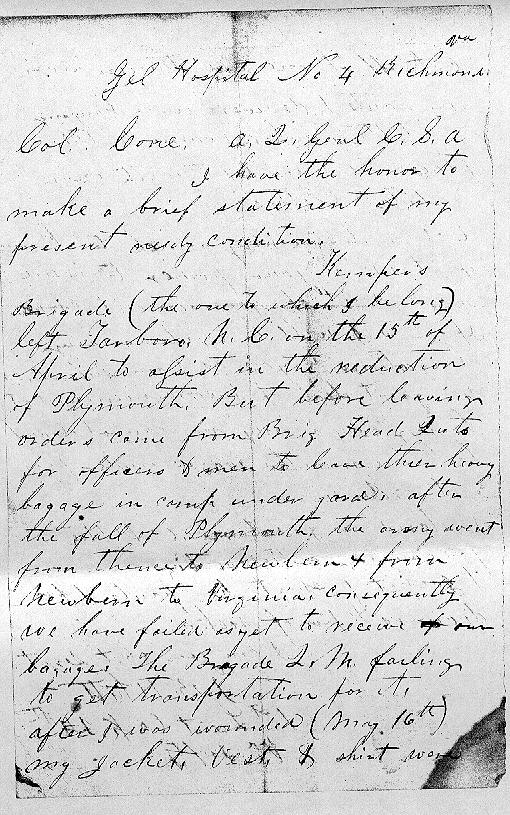 va
Gel Hospital No 4 Richmond
Col. Cone. A. Q. Genl C. S. A
I have the honor to
make a brief statement of my
present needy condition.
Kemper's
Brigade (the one to which I belong)
left Tarboro, N. C. on the 15th of
April to assist in the reduction
of Plymouth. But before leaving
orders come from Brig Head Qrts
for officers & men to leave thier heavy
bagage in camp under gard. after
the fall of Plymouth, the army went
from thence to Newbern & from
Newbern to Virginia. consequently
we have failed as yet to receive our
bagage. The Brigade Q. M. failing
to get transportation for it,
after I was wounded (May 16th)
my jacket, vest, & shirt were